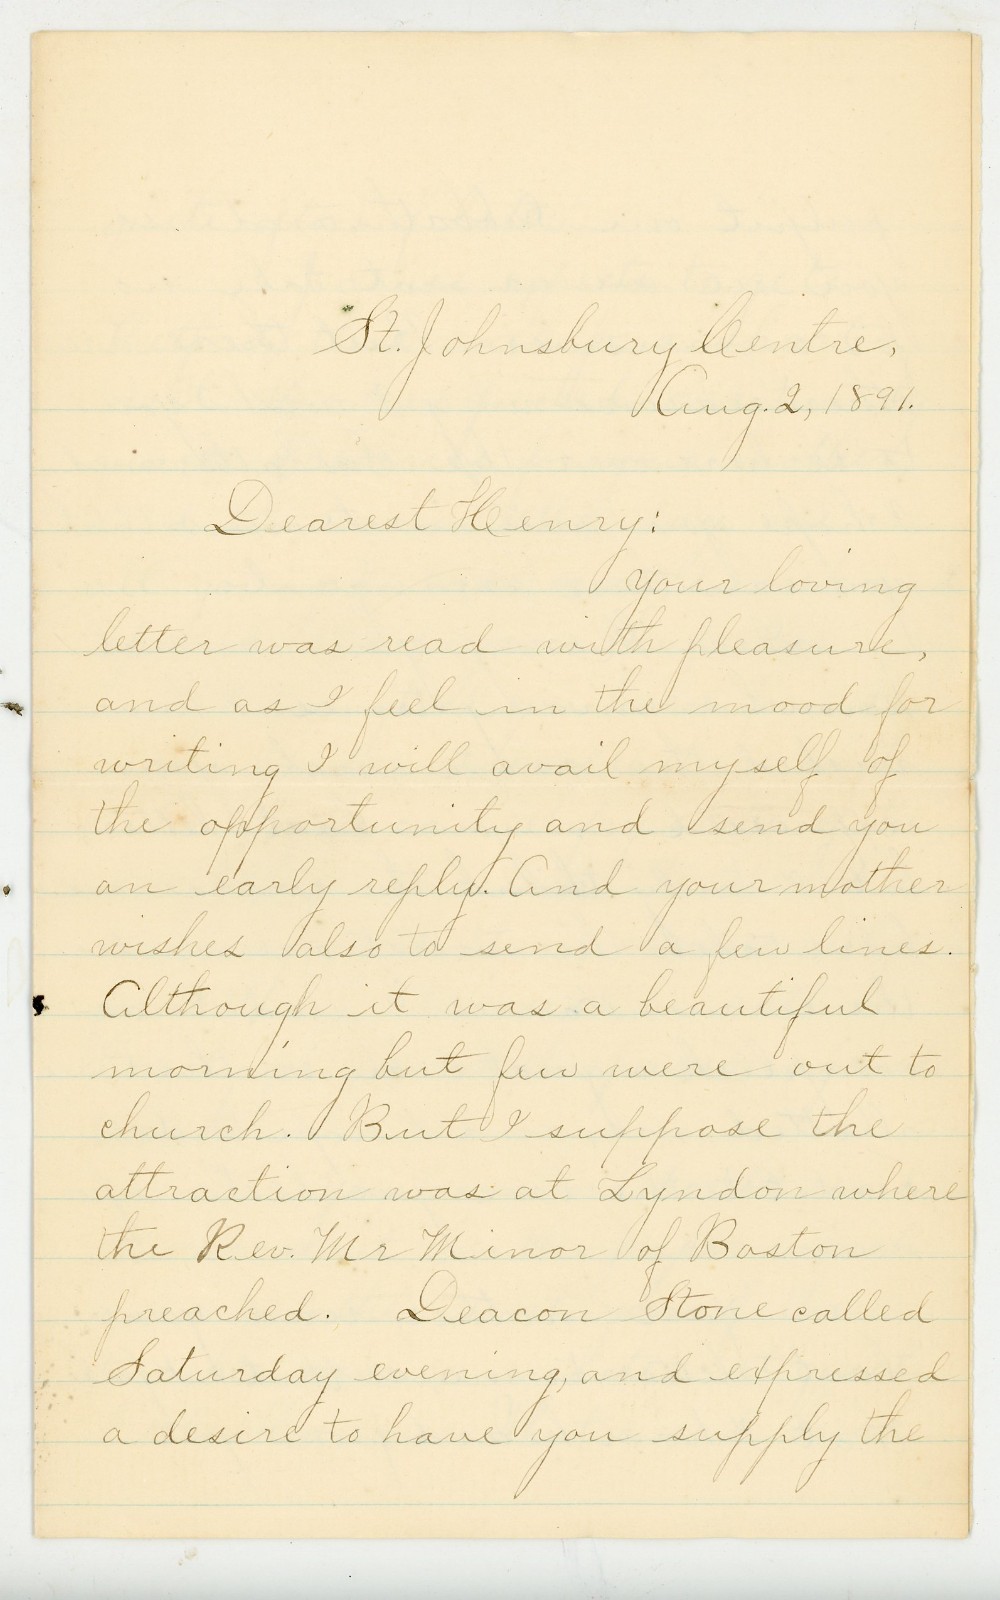 St. Johnsbury Centre,
Aug. 2, 1891.
Dearest Henry:
Your loving
letter was read with pleasure,
and as I feel in the mood for
writing I will avail myself of
the opportunity and send you
an early reply. And your mother
wishes also to send a few lines.
Although it was a beautiful
morning but few were out to
church. But I suppose the
attraction was at Lyndon where
the Rev. Mr Minor of Boston
preached. Deacon Stone called
Saturday evening, and expressed
a desire to have you supply the